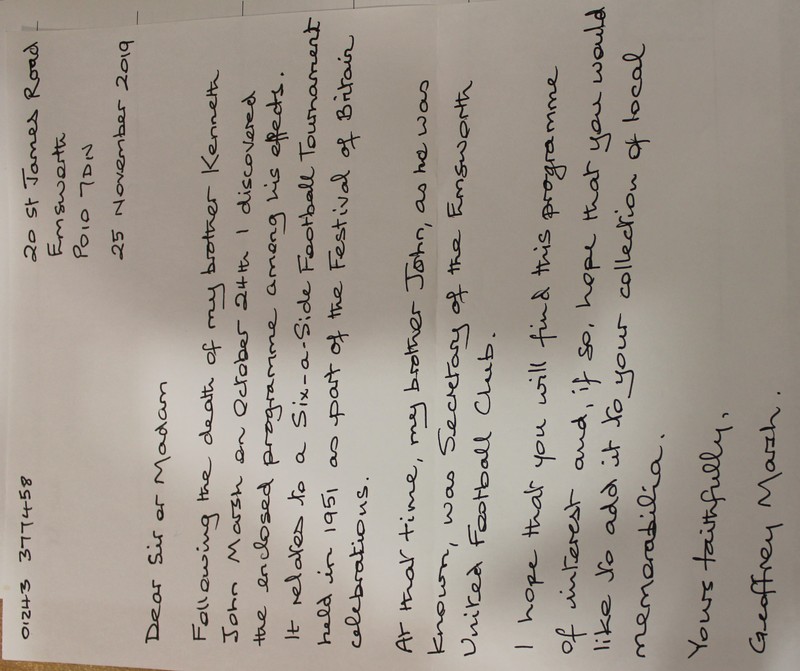 01243 377458
20 St James Road
Emsworth
PO10 7DN
25 November 2019
Dear Sir or Madam
Following the death of my brother Kenneth
John Marsh on October 24th I discovered
the enclosed programme among his effects.
It relates to a Six-a-Side Football Tournament
held in 1951 as part of the Festival of Britain
celebrations.
At that time, my brother John, as he was
known, was Secretary of the Emsworth
United Football Club.
I hope that you will find this programme
of interest and, if so, hope that you would
like to add it to your collection of local
memorabilia.
Yours faithfully,
Geoffrey Marsh.